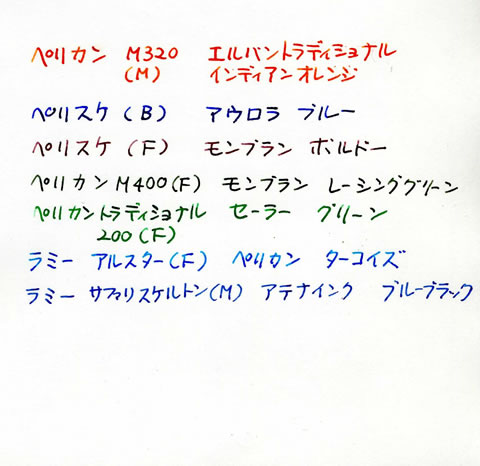 ペリカン M320 エルバントラディショナル
(M) インディアンオレンジ
ペリスケ (B) アウロラ ブルー
ペリスケ (F) モンブラン ボルドー
ペリカンM400(F) モンブラン レーシンググリーン
ペリカントラディショナル セーラー グリーン
200(F)
ラミー アルスター(F) ペリカン ターコイズ
ラミー サファリスケルトン(M) アテナインク ブルーブラック